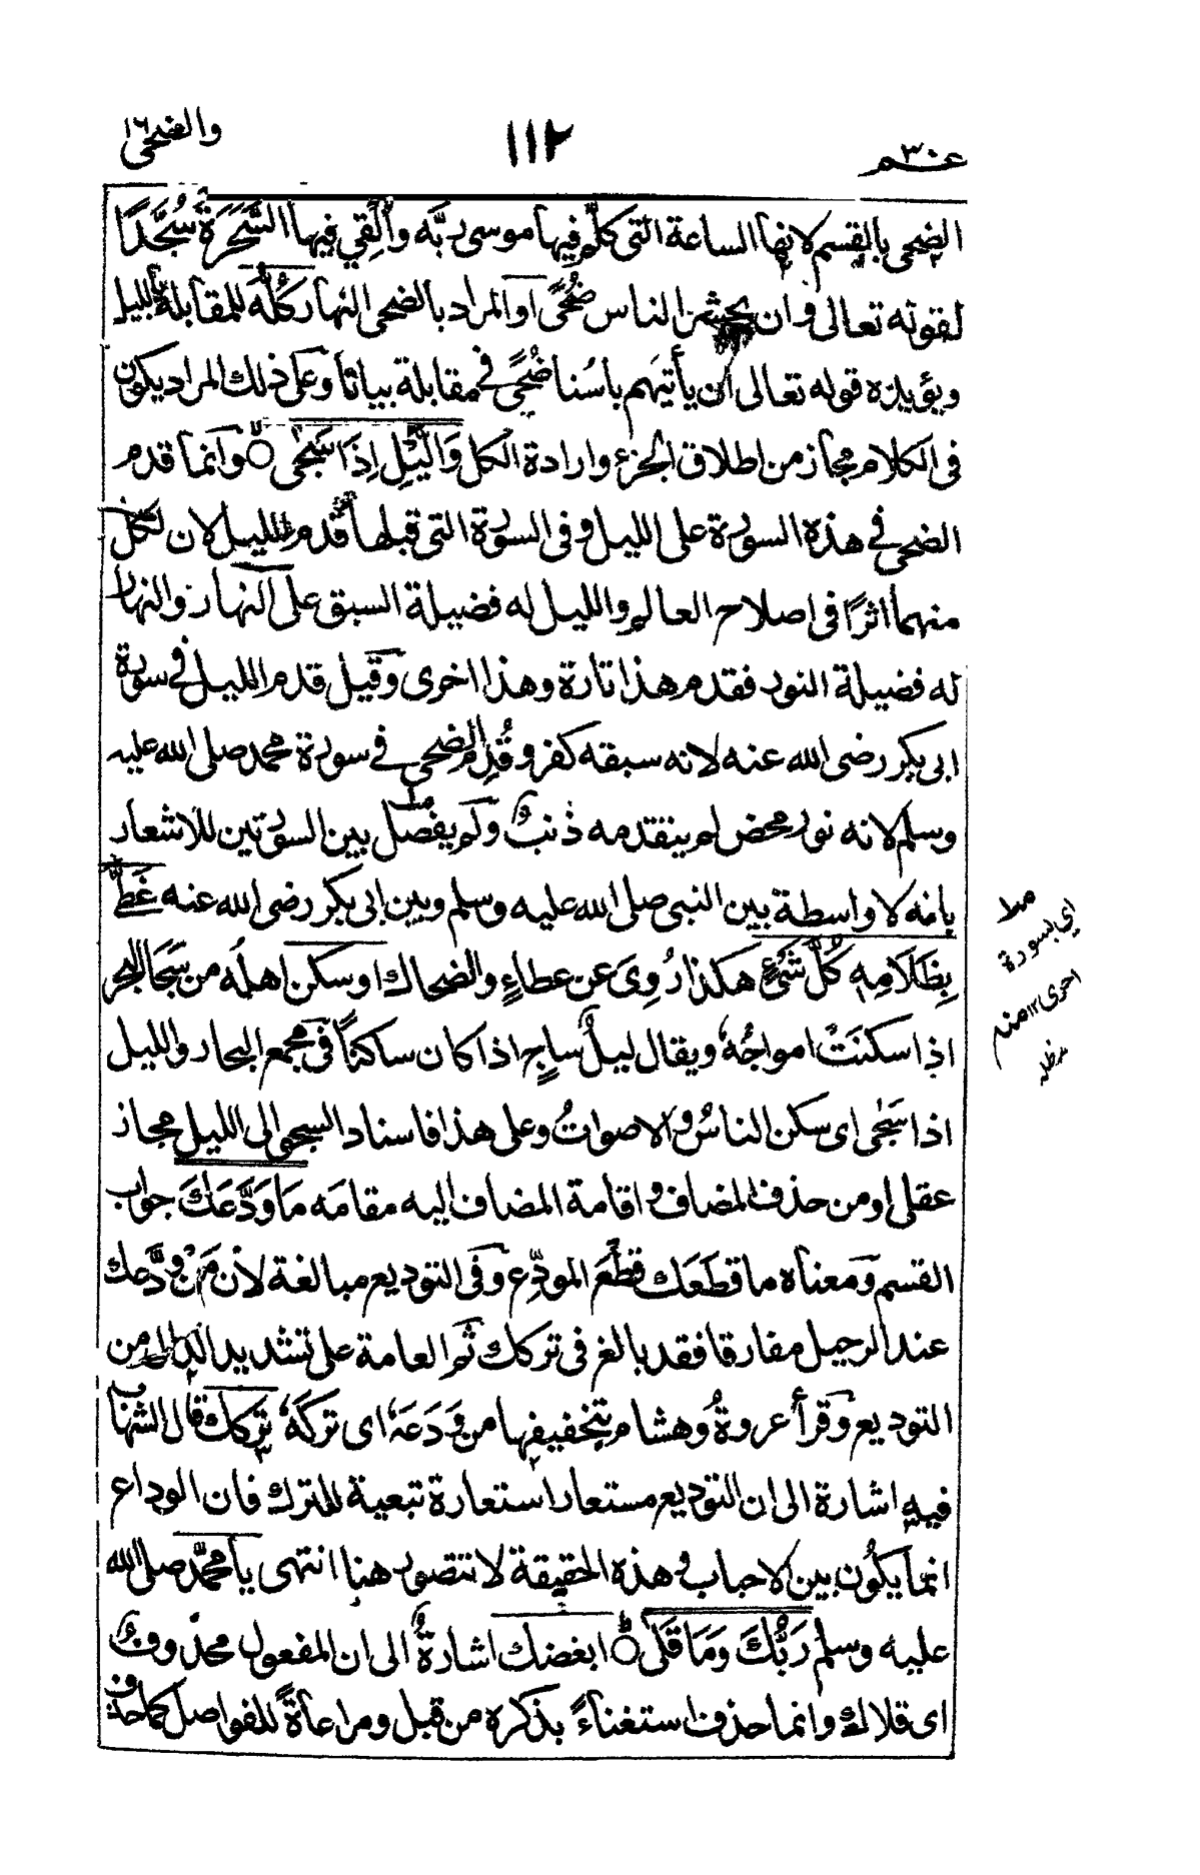 عم ٣٠
١١٢
والضحى ١٦
الضحى بالقسم لانها الساعة التى كلم فيها موسى ربه وأُلقِي فيها السَّحَرَة سُجَّدًا
لقوله تعالى وان يحشر الناس ضُحًى او المراد بالضحى النهار كُلُّه للمقابلة بالليل
ويؤيده قوله تعالى ان يأتيهم بأسُنا ضُحًى فى مقابلة بياتا وعلى ذلك المراد يكون
فى الكلام مجاز من اطلاق الجزء وارادة الكل وَالَّيْلِ اِذَا سَجٰى وانما قدم
الضحى فى هذه السورة على الليل وفى السورة التى قبلها قدم الليل لان لكل
منهما اثرًا فى اصلاح العالم والليل له فضيلة السبق على النهار والنهار
له فضيلة النور فقدم هذا تارة وهذا اخرى وقيل قدم الليل فى سورة
ابى بكر رضى الله عنه لانه سبقه كفر وقُدِّم الضحى فى سورة محمد صلى الله عليه
وسلم لانه نور محض لم يتقدمه ذنب ولم يفصل بين السورتين للاشعار
بانه لا واسطة بين النبى صلى الله عليه وسلم وبين ابى بكر رضى الله عنه غَطّٰى
بِظَلَامِهٖ كُلَّ شَىْءٍ هكذا رُوِىَ عن عطاءٍ والضحاك او سكن اهلُه من سَجَا البحر
اذا سكنَتْ امواجُهٗ ويقال ليلٌ ساجٍ اذا كان ساكنًا فى مجمع البحار والليل
اذا سَجٰى اى سكن الناسُ والاصواتُ وعلى هذا فاسناد السجو الى الليل مجاز
عقلى او من حذف المضاف واقامة المضاف اليه مقامَه مَا وَدَّعَكَ جواب
القسم ومعناه ما قطَعَك قطْعَ المودِّع وفى التوديع مبالغة لأن مَنْ ودَّعك
عند الرحيل مفارقا فقد بالغ فى تركك ثم العامة على تشديد الدال من
التوديع وقرأ عروةُ وهشام بتخفيفها من وَدَعَهٗ اى تركَهٗ تركك قال الشهاب
فيه اشارة الى ان التوديع مستعار استعارة تبعية للترك فان الوداع
انما يكُون بين الاحباب وهذه الحقيقة لا تتصور هنا انتهى يا محمّد صلى الله
عليه وسلم رَبُّكَ وَمَا قَلٰى ابغضك اشارةٌ الى ان المفعول محذوف
اى قلاك وانما حذف استغناءً بذكره من قبل ومراعاةً للفواصل كما حذف
اى بسورة
اخرى ١٢ منه
مدظله